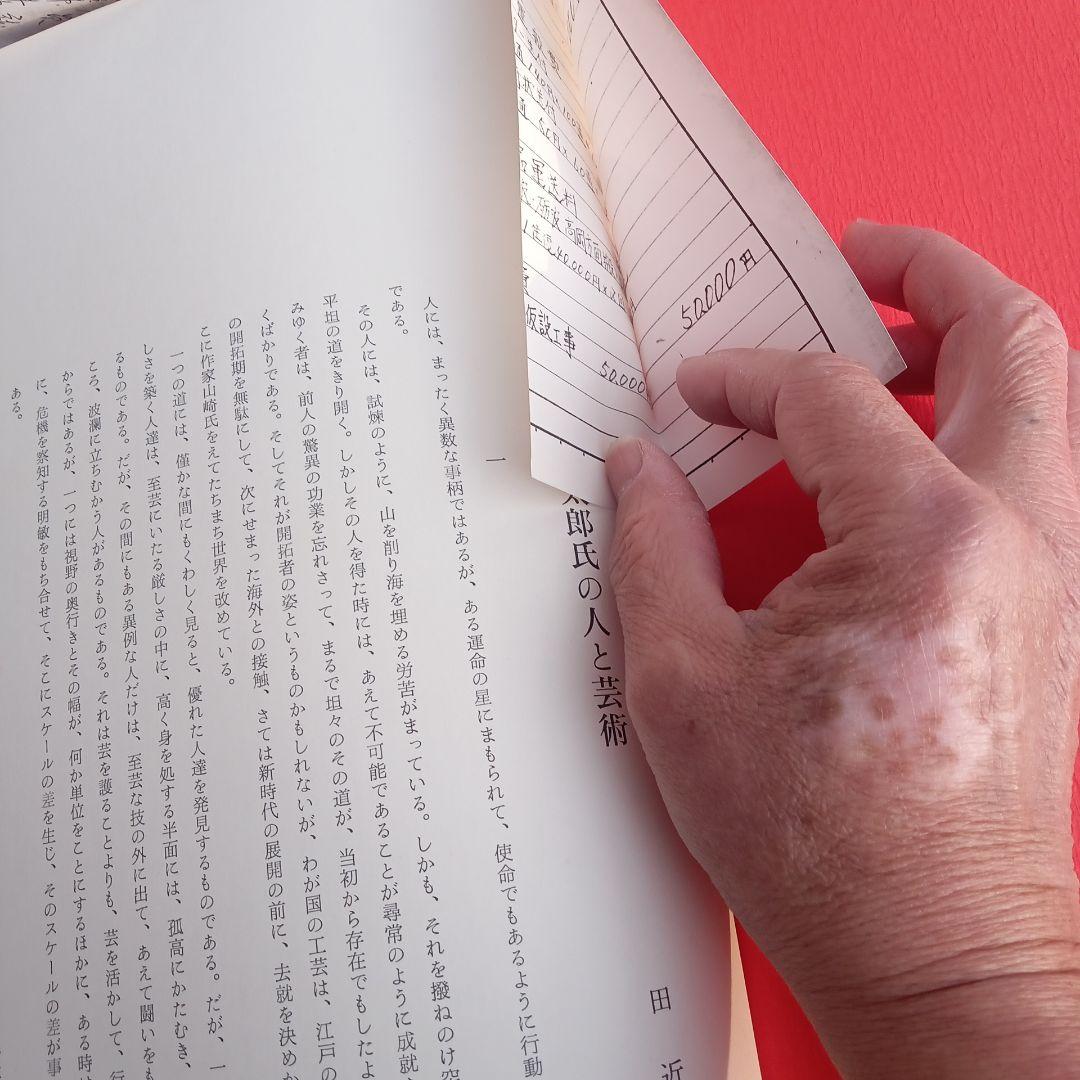 太郎氏の人と芸術
田 近
一
人には、まったく異数な事柄ではあるが、ある運命の星にまもられて、使命でもあるように行動
である。
その人には、試煉のように、山を削り海を埋める労苦がまっている。しかも、それを撥ねのけ空
平坦の道をきり開く。しかしその人を得た時には、あえて不可能であることが尋常のように成就
みゆく者は、前人の驚異の功業を忘れさって、まるで坦々のその道が、当初から存在でもしたよ
くばかりである。そしてそれが開拓者の姿というものかもしれないが、わが国の工芸は、江戸の
の開拓期を無駄にして、次にせまった海外との接触、さては新時代の展開の前に、去就を決めか
こに作家山崎氏をえてたちまち世界を改めている。
一つの道には、僅かな間にもくわしく見ると、優れた人達を発見するものである。だが、一
しさを築く人達は、至芸にいたる厳しさの中に、高く身を処する半面には、孤高にかたむき、
るものである。だが、その間にもある異例な人だけは、至芸な技の外に出て、あえて闘いをも
ころ、波瀾に立ちむかう人があるものである。それは芸を護ることよりも、芸を活かして、行
からではあるが、一つには視野の奥行きとその幅が、何か単位をことにするほかに、ある時は
に、危機を察知する明敏をもち合せて、そこにスケールの差を生じ、そのスケールの差が事
ある。
運送料
高岡方面
40,000円×2
仮設工事
50.000
50.000円